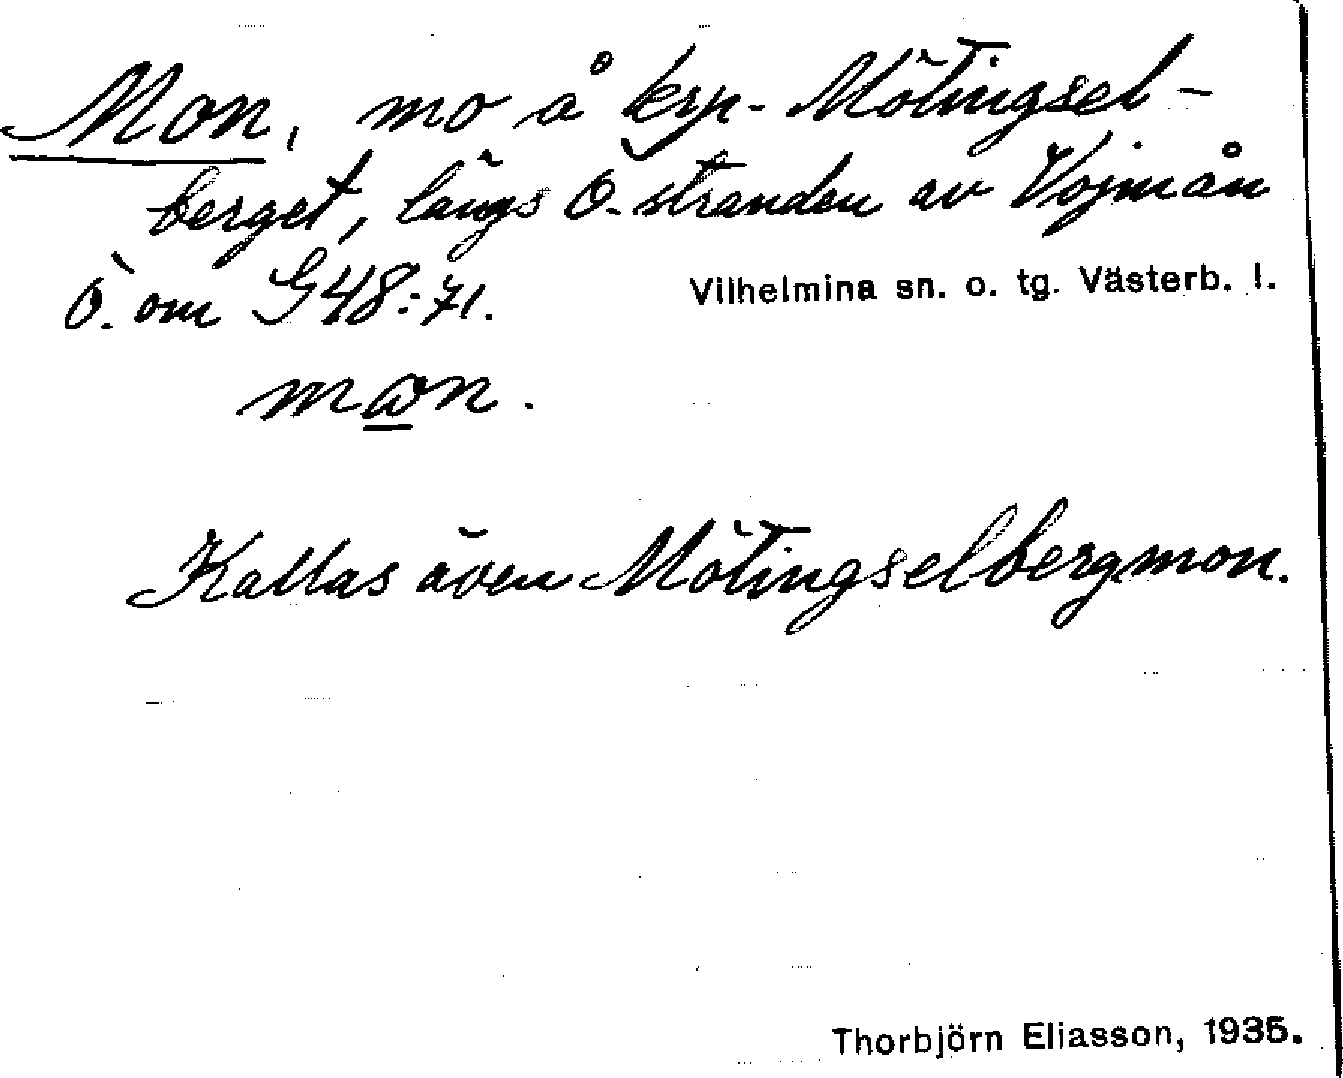 Mon, mo å krp. Mötingsel-
berget, längs Ö. stranden av Vojmån
Ö. om G48:71.
Vilhelmina sn. o. tg. Västerb. l.
Kallas även Mötingselbergmon.
Thorbjörn Eliasson, 1935.